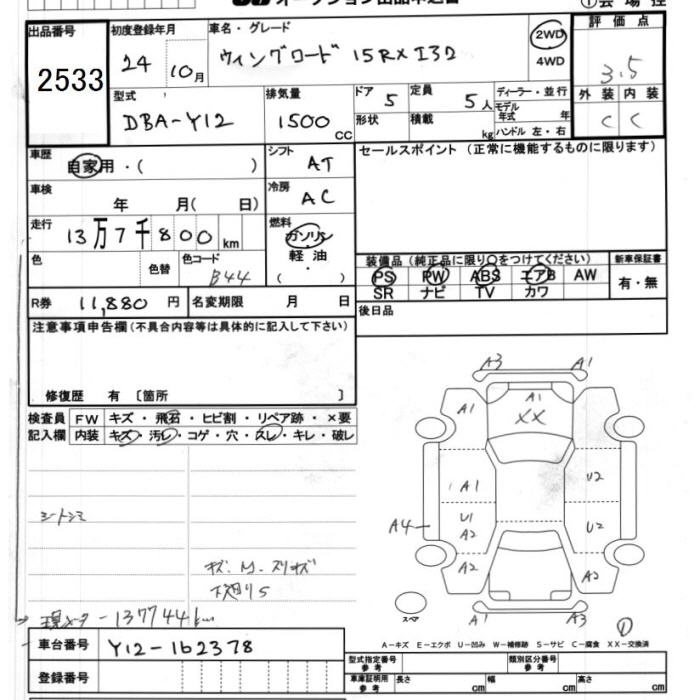 出品番号 2533
初度登録年月 24 10月
車名・グレード ウィングロード 15RX エアロ
2WD
4WD
評価点 3.5
外装 内装
C C
型式 DBA-Y12
排気量 1500 CC
ドア 5
形状
定員 5人
積載 kg
ディーラー・並行
モデル年式 年
ハンドル 左・右
車歴 自家用・( )
シフト AT
セールスポイント(正常に機能するものに限ります)
車検 年 月( 日)
冷房 AC
走行 13万7千800km
燃料 ガソリン
軽油
( )
色 色替
色コード B44
装備品(純正品に限り○をつけてください)
PS PW ABS エアB AW
SR ナビ TV カワ
新車保証書
有・無
R券 11,880円
名変期限 月 日
後日品
注意事項申告欄(不具合内容等は具体的に記入して下さい)
修復歴 有 〔箇所 〕
検査員記入欄
FW キズ・飛石・ヒビ割・リペア跡・×要
内装 キズ・汚レ・コゲ・穴・スレ・キレ・破レ
シートシミ
キズ・M・スリキズ
下廻りS
現メーター 137744km
A3 A1
A1
XX
A1
A1
U2
U1
A2
U2
A4
A2
A2
スペア
A1 A3
①
A-キズ E-エクボ U-凹み W-補修跡 S-サビ C-腐食 XX-交換済
車台番号 Y12-162378
登録番号
型式指定番号 参考
類別区分番号 参考
車庫証明用 参考 長さ cm 幅 cm 高さ cm